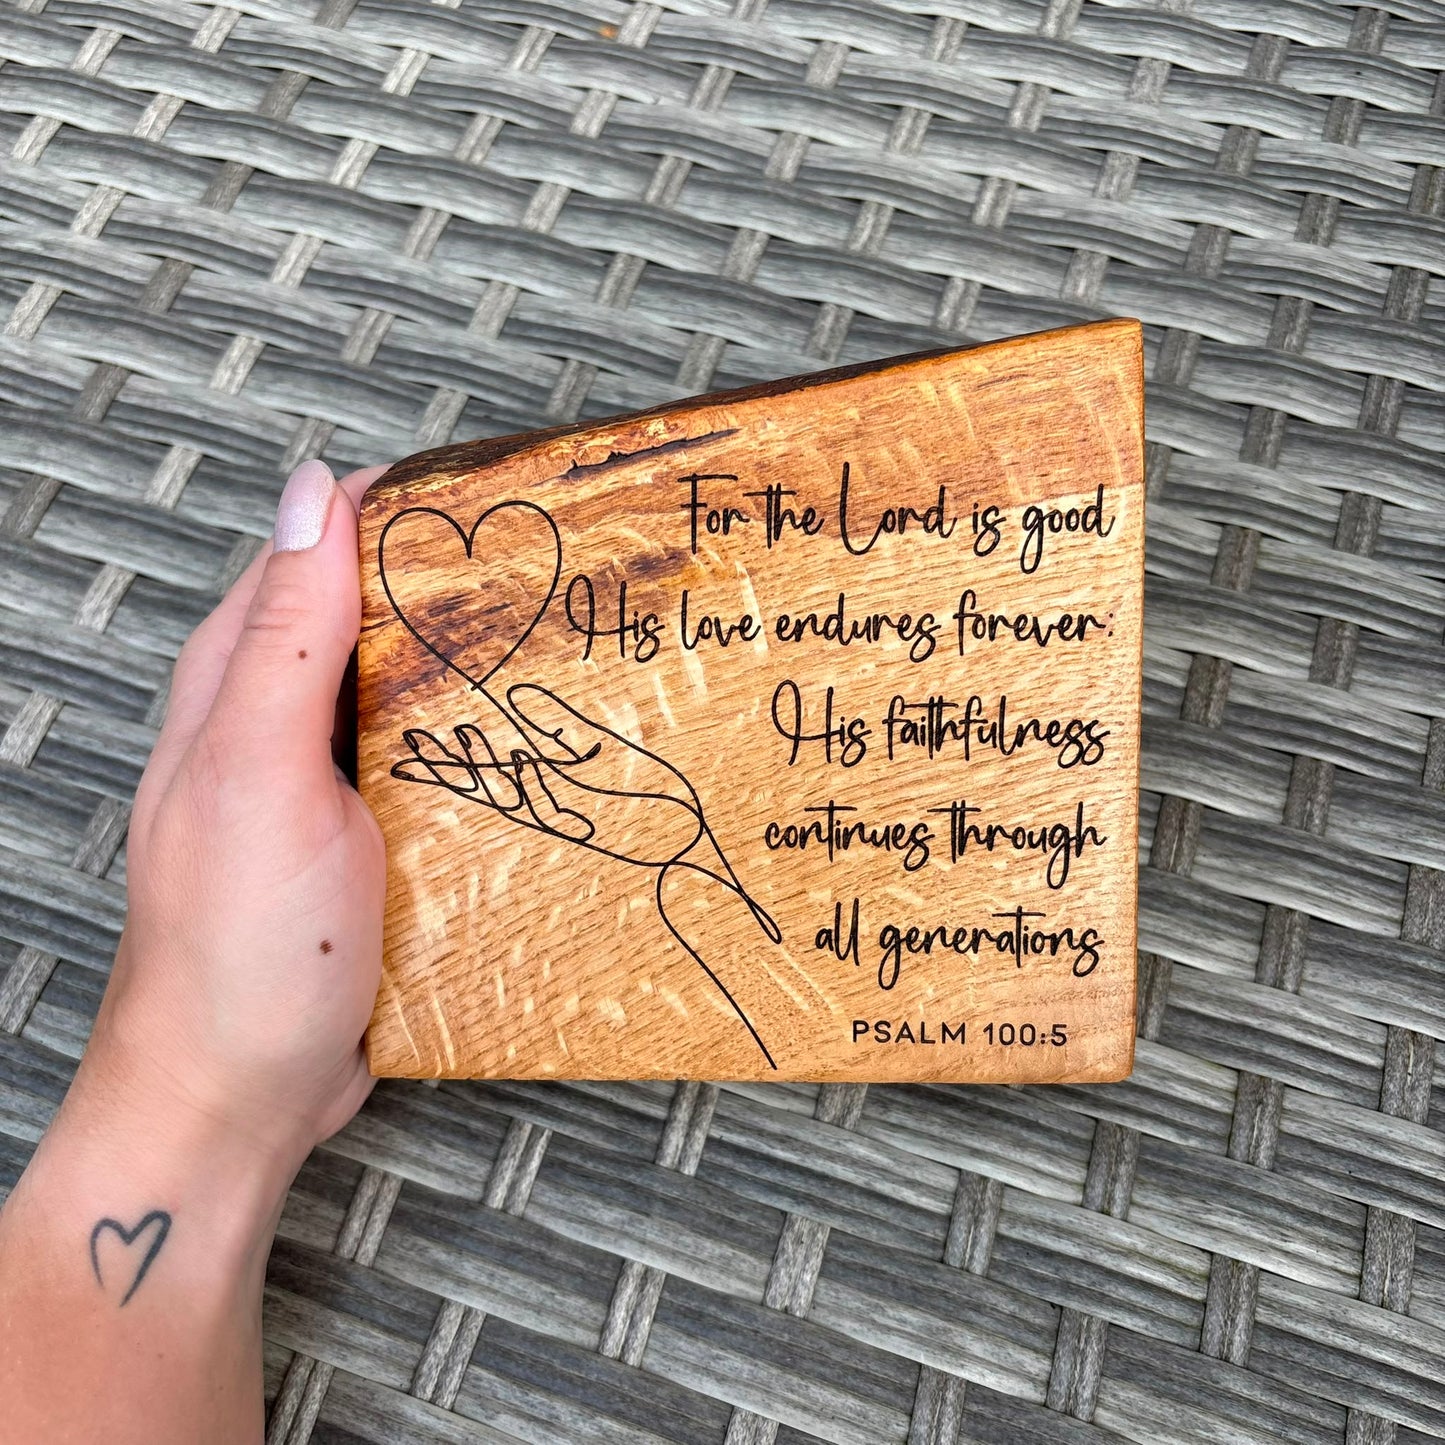 For the Lord is good
His love endures forever:
His faithfulness
continues through
all generations
PSALM 100:5